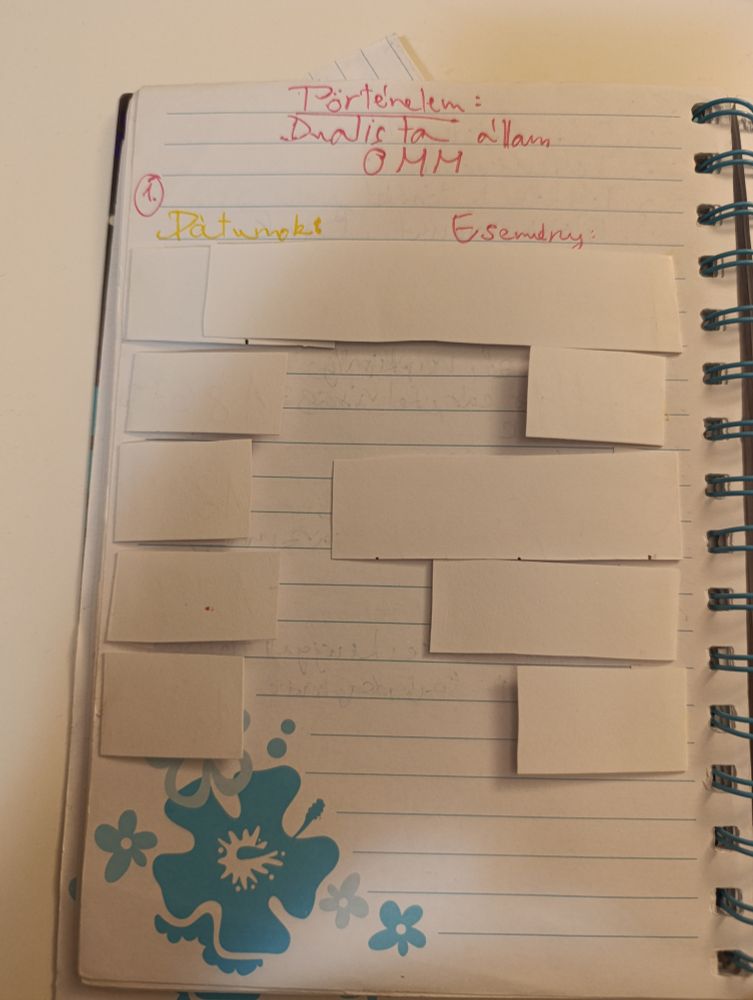 Történelem:
Dualista állam
OMM
1.
Dátumok: Esemény: